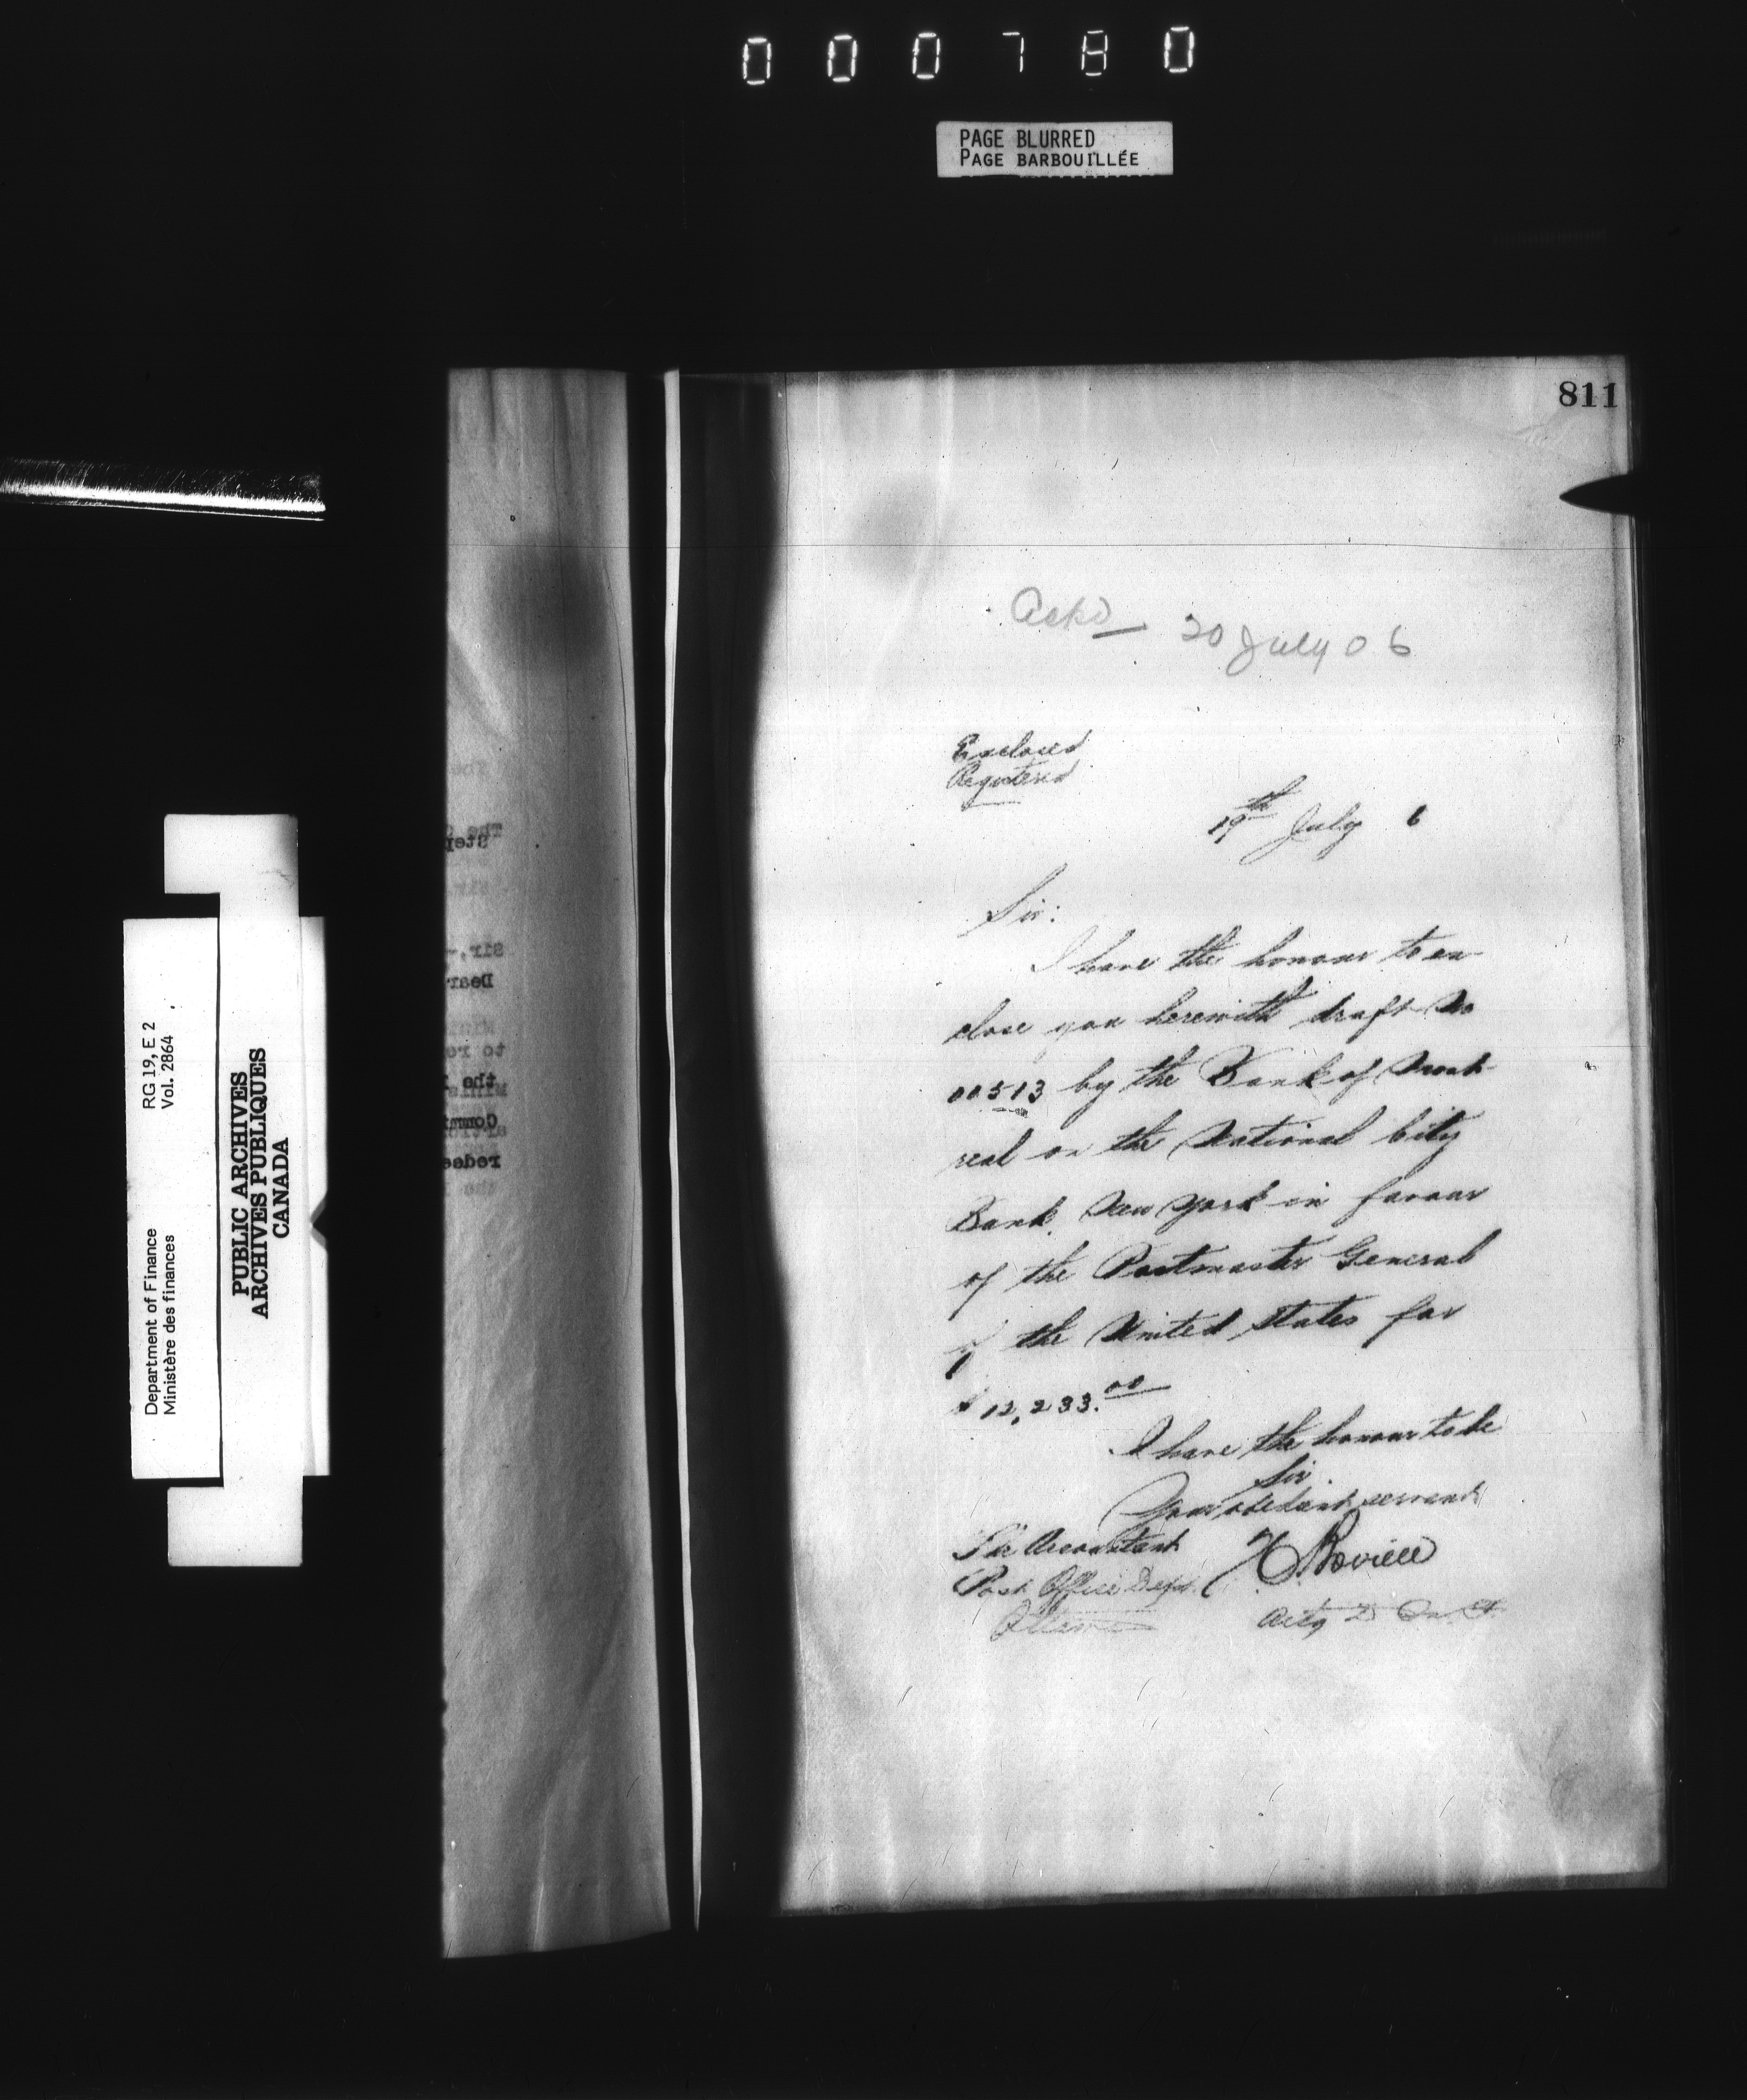 000780
PAGE BLURRED
PAGE BARBOUILLÉE
811
Ackd 20 July 06
Enclosed
Registered
19th July 6
Sir:
I have the honour to en-
close you herewith draft No
00513 by the Bank of Mont-
real on the National City
Bank, New York in favour
of the Postmaster General
of the United States for
$12,233.00
I have the honour to be
Sir.
Your obedient servant
The Accountant
Post Office Dept.
Ottawa
Boville
RG 19, E 2
Vol. 2864
Department of Finance
Ministère des finances
PUBLIC ARCHIVES
ARCHIVES PUBLIQUES
CANADA
Sir,
Dear
to re
the
Comm
redee
the